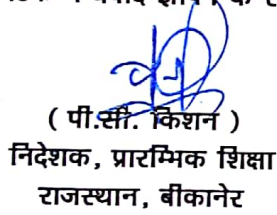 ( पी.सी. किशन )
निदेशक, प्रारम्भिक शिक्षा
राजस्थान, बीकानेर